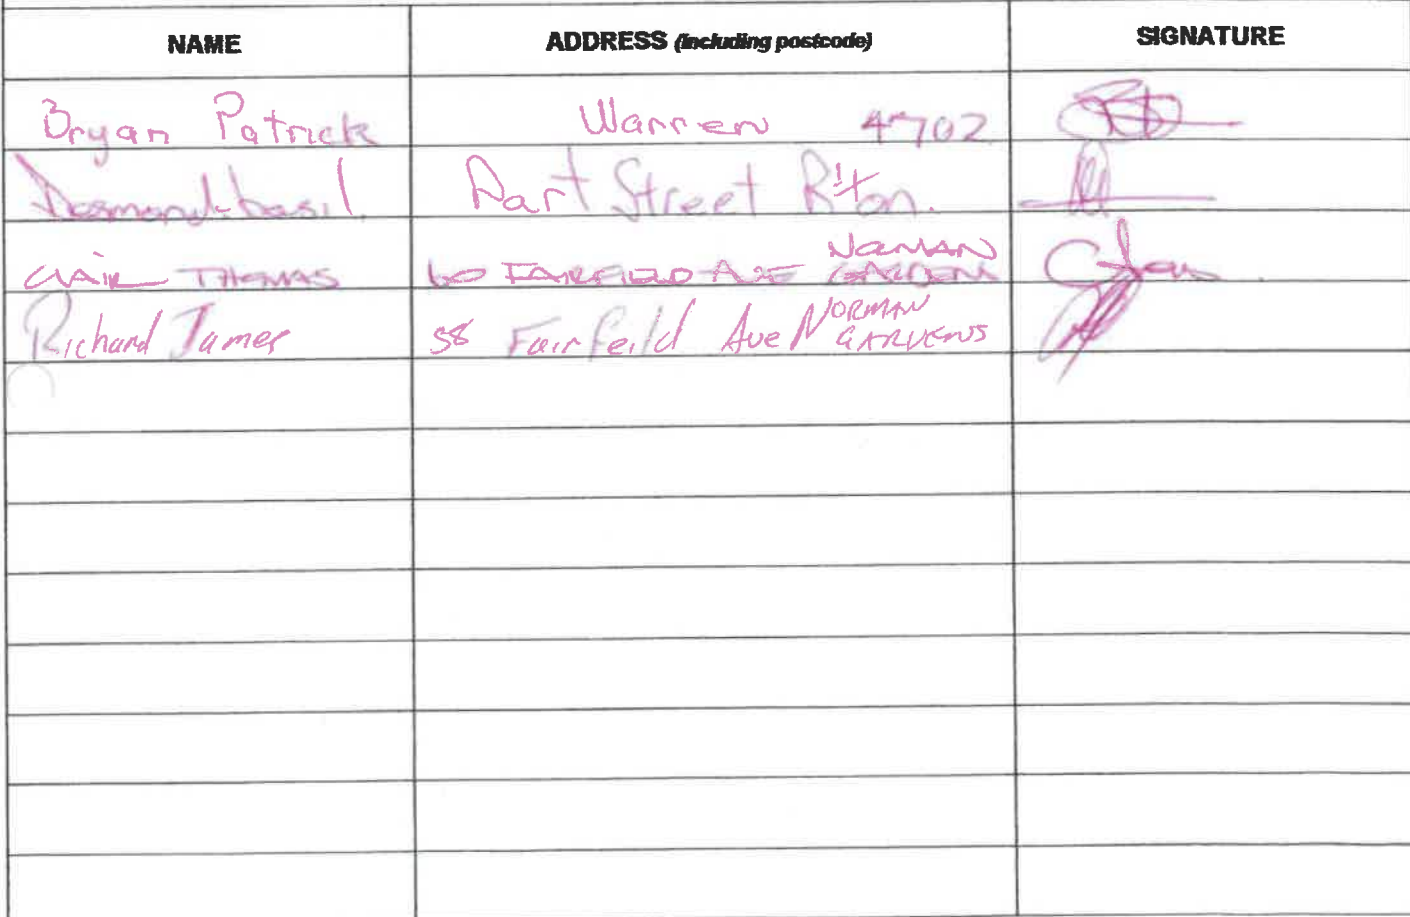 NAME ADDRESS (including postcode) SIGNATURE
Bryan Patrick Warren 4702
Desmond-basil. Dart Street R'ton.
CLAIR THOMAS 60 FAIRFIELD AVE NORMAN GARDENS
Richard James 58 Fairfeild Ave NORMAN GARDENS